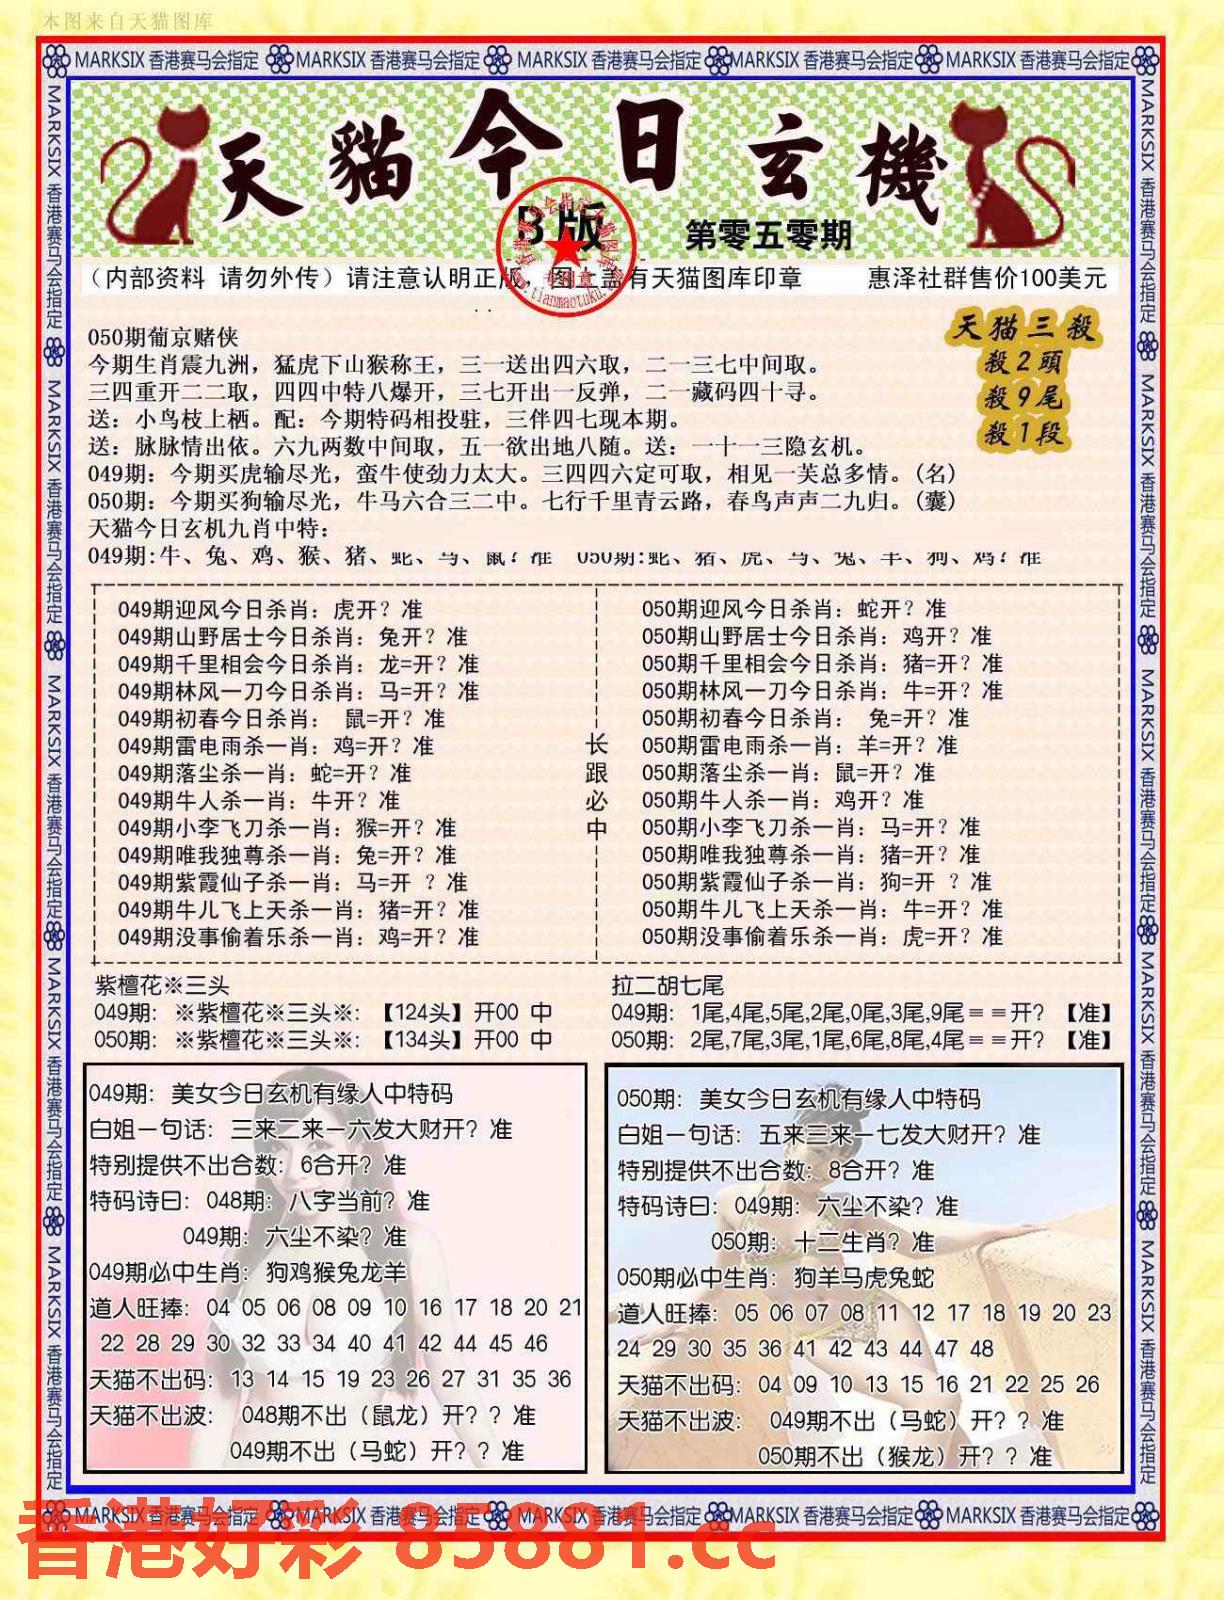 本图来自天猫图库
MARKSIX 香港赛马会指定 MARKSIX 香港赛马会指定 MARKSIX 香港赛马会指定 MARKSIX 香港赛马会指定 MARKSIX 香港赛马会指定
MARKSIX 香港赛马会指定 MARKSIX 香港赛马会指定 MARKSIX 香港赛马会指定 MARKSIX 香港赛马会指定 MARKSIX 香港赛马会指定
天貓今日玄機
B版
第零五零期
(内部资料 请勿外传）请注意认明正版 图上盖有天猫图库印章 惠泽社群售价100美元
专用章
www.tianmaotuku.
天猫三殺
殺2頭
殺9尾
殺1段
050期葡京赌侠
今期生肖震九洲，猛虎下山猴称王，三一送出四六取，二一三七中间取。
三四重开二二取，四四中特八爆开，三七开出一反弹，二一藏码四十寻。
送：小鸟枝上栖。配：今期特码相投驻，三伴四七现本期。
送：脉脉情出依。六九两数中间取，五一欲出地八随。送：一十一三隐玄机。
049期：今期买虎输尽光，蛮牛使劲力太大。三四四六定可取，相见一芙总多情。(名)
050期：今期买狗输尽光，牛马六合三二中。七行千里青云路，春鸟声声二九归。(囊)
天猫今日玄机九肖中特：
049期:牛、兔、鸡、猴、猪、蛇、马、鼠？准 050期:蛇、猪、虎、马、兔、羊、狗、鸡？准
049期迎风今日杀肖：虎开？准
049期山野居士今日杀肖：兔开？准
049期千里相会今日杀肖：龙=开？准
049期林风一刀今日杀肖：马=开？准
049期初春今日杀肖： 鼠=开？准
049期雷电雨杀一肖：鸡=开？准
049期落尘杀一肖：蛇=开？准
049期牛人杀一肖：牛开？准
049期小李飞刀杀一肖：猴=开？准
049期唯我独尊杀一肖：兔=开？准
049期紫霞仙子杀一肖：马=开 ？准
049期牛儿飞上天杀一肖：猪=开？准
049期没事偷着乐杀一肖：鸡=开？准
长跟必中
050期迎风今日杀肖：蛇开？准
050期山野居士今日杀肖：鸡开？准
050期千里相会今日杀肖：猪=开？准
050期林风一刀今日杀肖：牛=开？准
050期初春今日杀肖： 兔=开？准
050期雷电雨杀一肖：羊=开？准
050期落尘杀一肖：鼠=开？准
050期牛人杀一肖：鸡开？准
050期小李飞刀杀一肖：马=开？准
050期唯我独尊杀一肖：猪=开？准
050期紫霞仙子杀一肖：狗=开 ？准
050期牛儿飞上天杀一肖：牛=开？准
050期没事偷着乐杀一肖：虎=开？准
紫檀花※三头
049期：※紫檀花※三头※:【124头】开00 中
050期：※紫檀花※三头※:【134头】开00 中
拉二胡七尾
049期：1尾,4尾,5尾,2尾,0尾,3尾,9尾＝＝开？【准】
050期：2尾,7尾,3尾,1尾,6尾,8尾,4尾＝＝开？【准】
049期：美女今日玄机有缘人中特码
白姐一句话：三来二来一六发大财开？准
特别提供不出合数：6合开？准
特码诗曰：048期：八字当前？准
049期：六尘不染？准
049期必中生肖：狗鸡猴兔龙羊
道人旺捧：04 05 06 08 09 10 16 17 18 20 21
22 28 29 30 32 33 34 40 41 42 44 45 46
天猫不出码：13 14 15 19 23 26 27 31 35 36
天猫不出波： 048期不出（鼠龙）开？？准
049期不出（马蛇）开？？准
050期：美女今日玄机有缘人中特码
白姐一句话：五来三来一七发大财开？准
特别提供不出合数：8合开？准
特码诗曰：049期：六尘不染？准
050期：十二生肖？准
050期必中生肖：狗羊马虎兔蛇
道人旺捧：05 06 07 08 11 12 17 18 19 20 23
24 29 30 35 36 41 42 43 44 47 48
天猫不出码：04 09 10 13 15 16 21 22 25 26
天猫不出波： 049期不出（马蛇）开？？准
050期不出（猴龙）开？？准
MARKSIX 香港赛马会指定 MARKSIX 香港赛马会指定 MARKSIX 香港赛马会指定 MARKSIX 香港赛马会指定 MARKSIX 香港赛马会指定
MARKSIX 香港赛马会指定 MARKSIX 香港赛马会指定 MARKSIX 香港赛马会指定 MARKSIX 香港赛马会指定 MARKSIX 香港赛马会指定
香港好彩 85881.cc